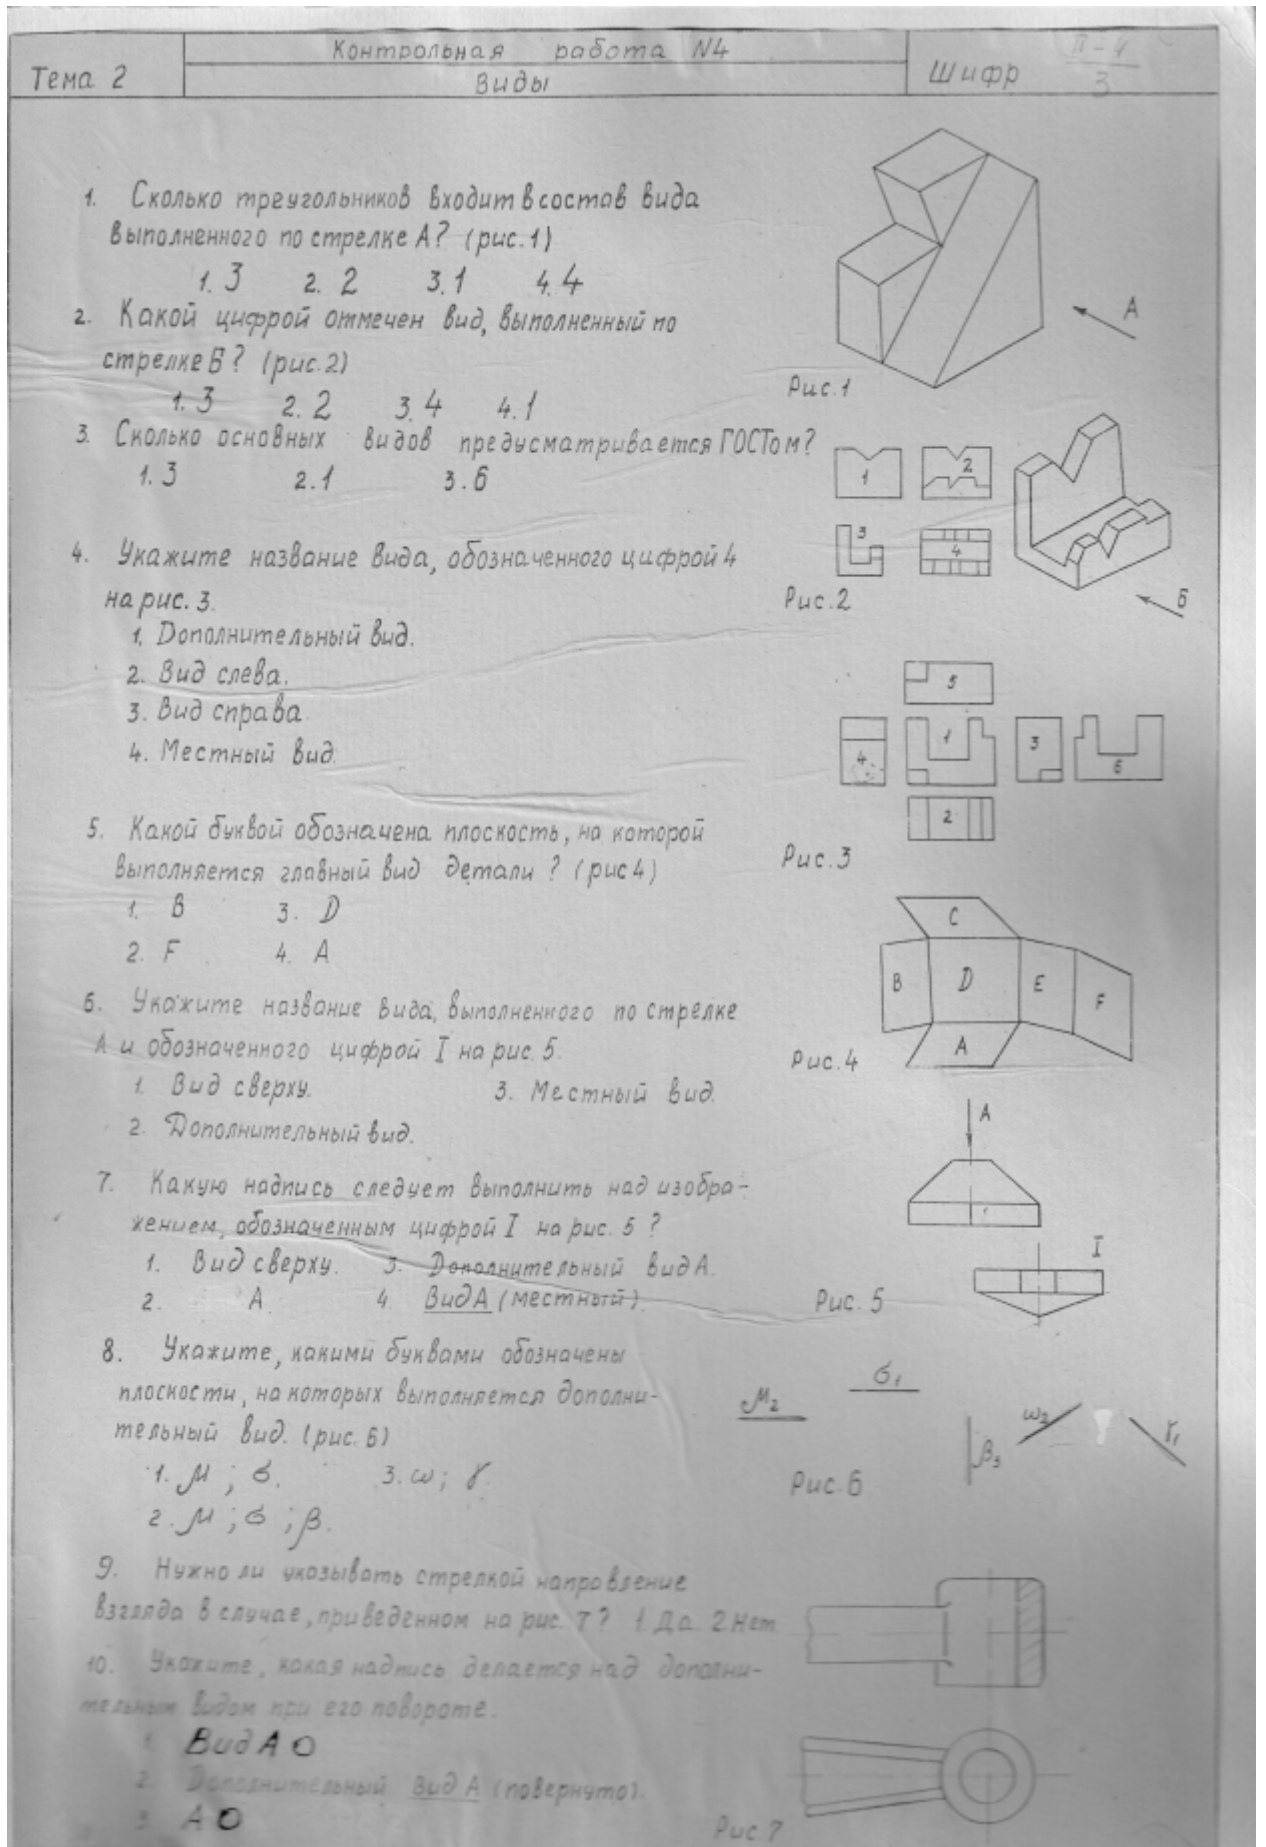 Контрольная работа N4
Тема 2
Виды
Шифр П-4
3
1. Сколько треугольников входит в состав вида
выполненного по стрелке А? (рис.1)
1. 3 2. 2 3. 1 4. 4
2. Какой цифрой отмечен вид, выполненный по
стрелке Б? (рис.2)
1. 3 2. 2 3. 4 4. 1
3. Сколько основных видов предусматривается ГОСТом?
1. 3 2. 1 3. 6
4. Укажите название вида, обозначенного цифрой 4
на рис. 3.
1. Дополнительный вид.
2. Вид слева.
3. Вид справа.
4. Местный вид.
5. Какой буквой обозначена плоскость, на которой
выполняется главный вид детали? (рис 4)
1. В 3. D
2. F 4. А
6. Укажите название вида, выполненного по стрелке
А и обозначенного цифрой I на рис. 5.
1. Вид сверху. 3. Местный вид.
2. Дополнительный вид.
7. Какую надпись следует выполнить над изобра-
жением, обозначенным цифрой I на рис. 5 ?
1. Вид сверху. 3. Дополнительный вид А.
2. А. 4. Вид А (местный).
8. Укажите, какими буквами обозначены
плоскости, на которых выполняется дополни-
тельный вид. (рис. 6)
1. μ ; σ. 3. ω ; γ.
2. μ ; σ ; β.
9. Нужно ли указывать стрелкой направление
взгляда в случае, приведенном на рис. 7? 1. Да. 2. Нет.
10. Укажите, какая надпись делается над дополни-
тельным видом при его повороте.
1. Вид А О
2. Дополнительный вид А (повернуто).
3. А О
А
Рис. 1
1
2
3
4
Б
Рис. 2
5
4
1
3
6
2
Рис. 3
C
B
D
E
F
A
Рис. 4
А
I
Рис. 5
μ₂
σ₁
β₃
ω₂
γ₁
Рис. 6
Рис. 7